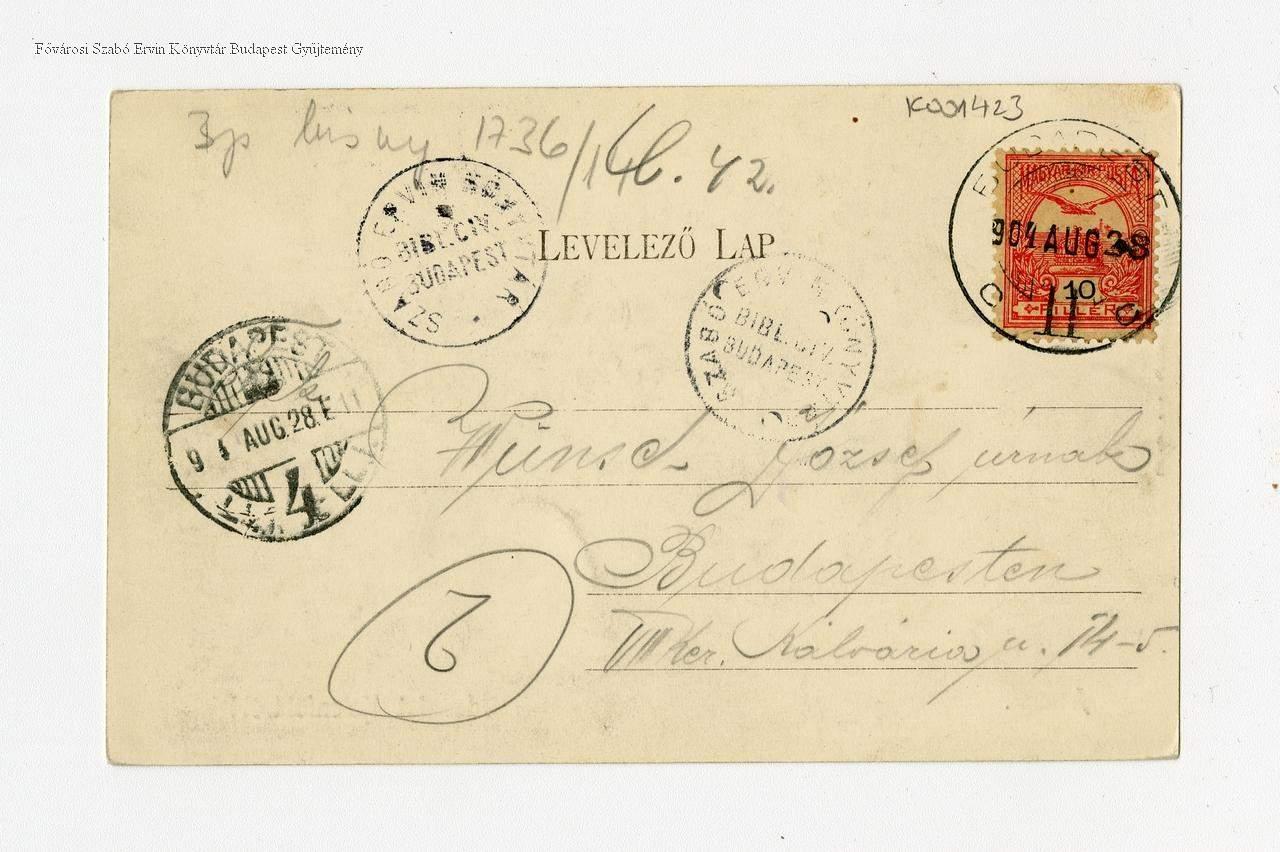 Fővárosi Szabó Ervin Könyvtár Budapest Gyűjtemény
K001423
1736/146.42.
SZABÓ ERVIN KÖNYVTÁR
BIBL.CIV.
BUDAPEST
LEVELEZŐ LAP
MAGYAR KIR. POSTA
904 AUG 28
10
FILLÉR
SZABÓ ERVIN KÖNYVTÁR
BIBL.CIV.
BUDAPEST
BUDAPEST
AUG.28.
4
József úrnak
Budapesten
VIII ker. Kálvária u. 14-5.
2